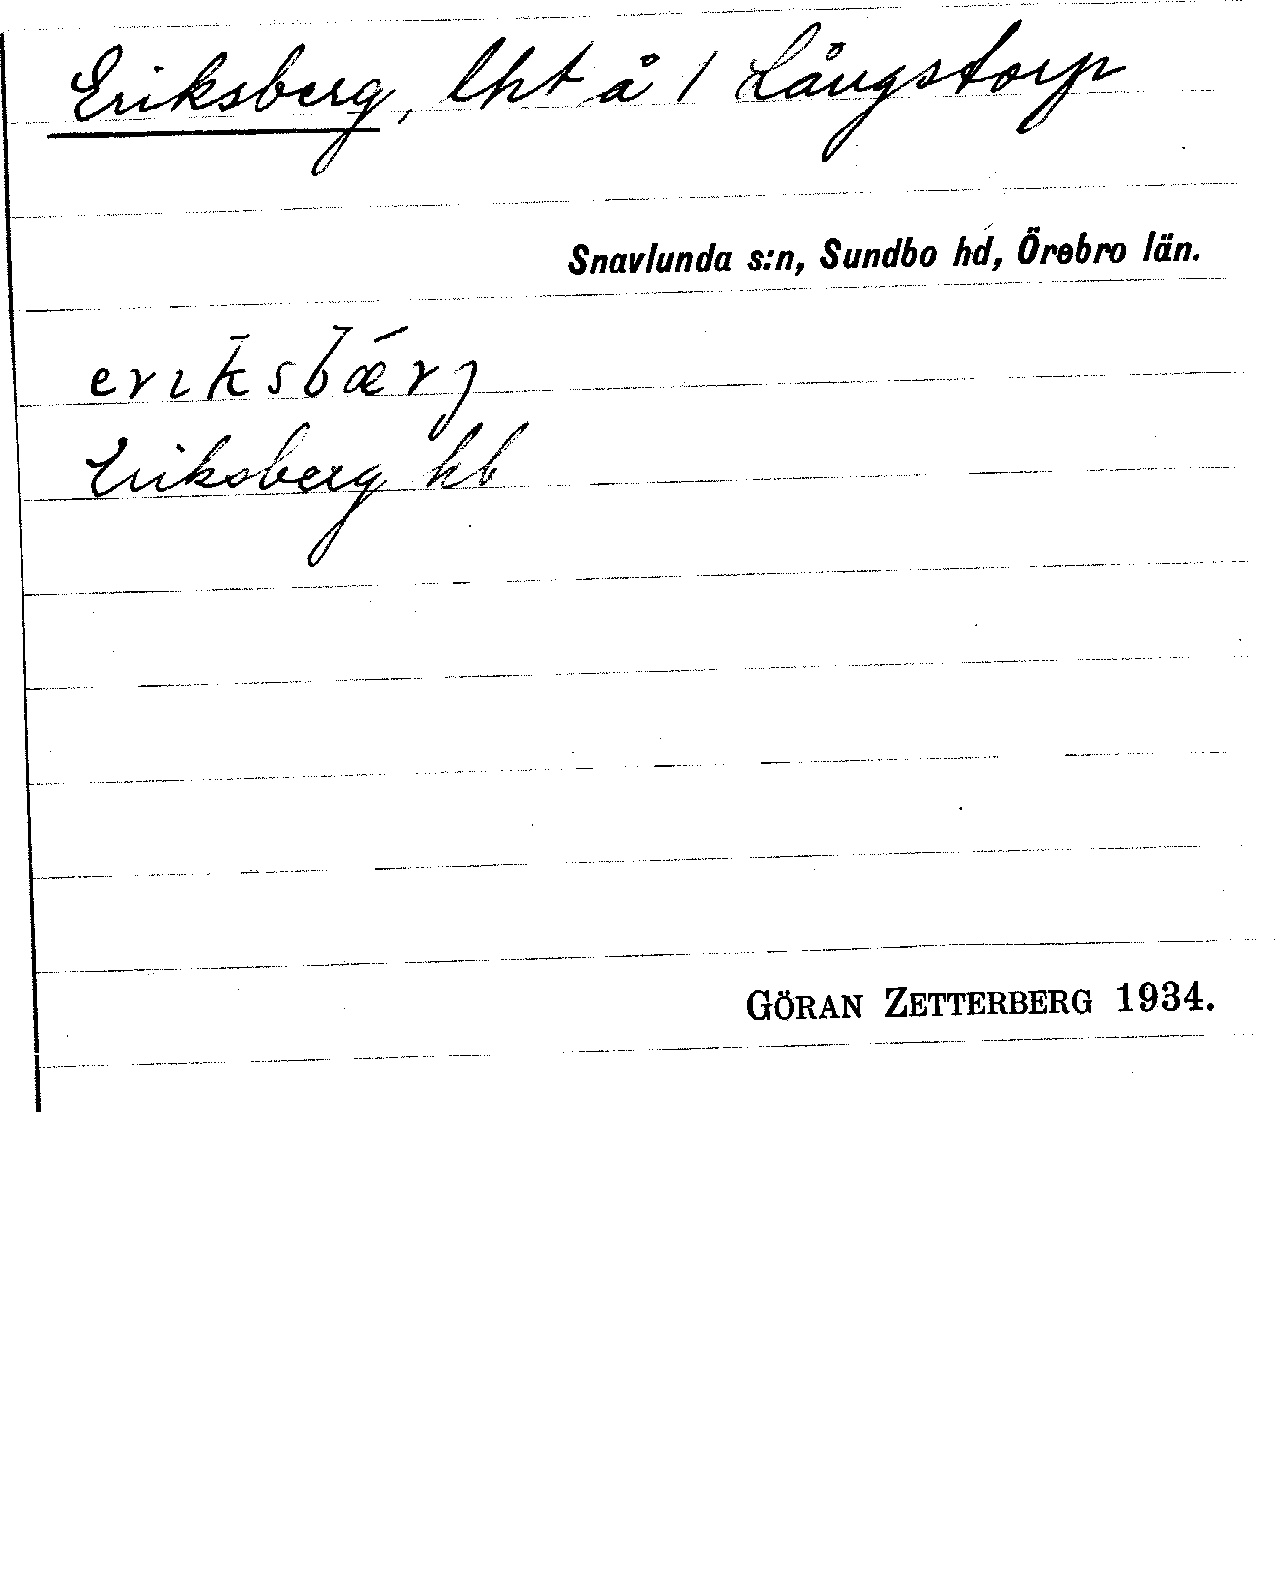 Eriksberg, lht å 1 Långstorp
Snavlunda s:n, Sundbo hd, Örebro län.
erık̄sb̄ǽrj
Eriksberg kb
GÖRAN ZETTERBERG 1934.